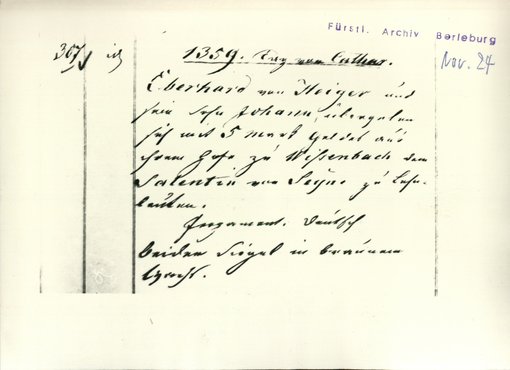 Fürstl. Archiv Berleburg
Nov. 24
307
1359. Tag vor Cathar.
Eberhard von Heiger und
sein Sohn Johann, übergeben
sich mit 5 mark geldes aus
ihrem Hofe zu Wissenbach dem
Salentin von Seyne zu Lehn-
leuten.
Pergament. Deutsch
beider Siegel in braunem
Wachs.